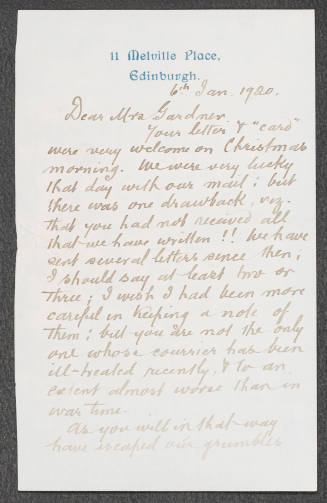 11 Melville Place,
Edinburgh.
6th Jan. 1920.
Dear Mrs Gardner
Your letter & "card"
were very welcome on Christmas
morning. We were very lucky
that day with our mail; but
there was one drawback, viz.
that you had not received all
that we have written!! We have
sent several letters since then;
I should say at least two or
three; I wish I had been more
careful in keeping a note of
them; but you are not the only
one whose courrier has been
ill-treated recently, & to an
extent almost worse than in
war time.
As you will in that way
have escaped our grumbles